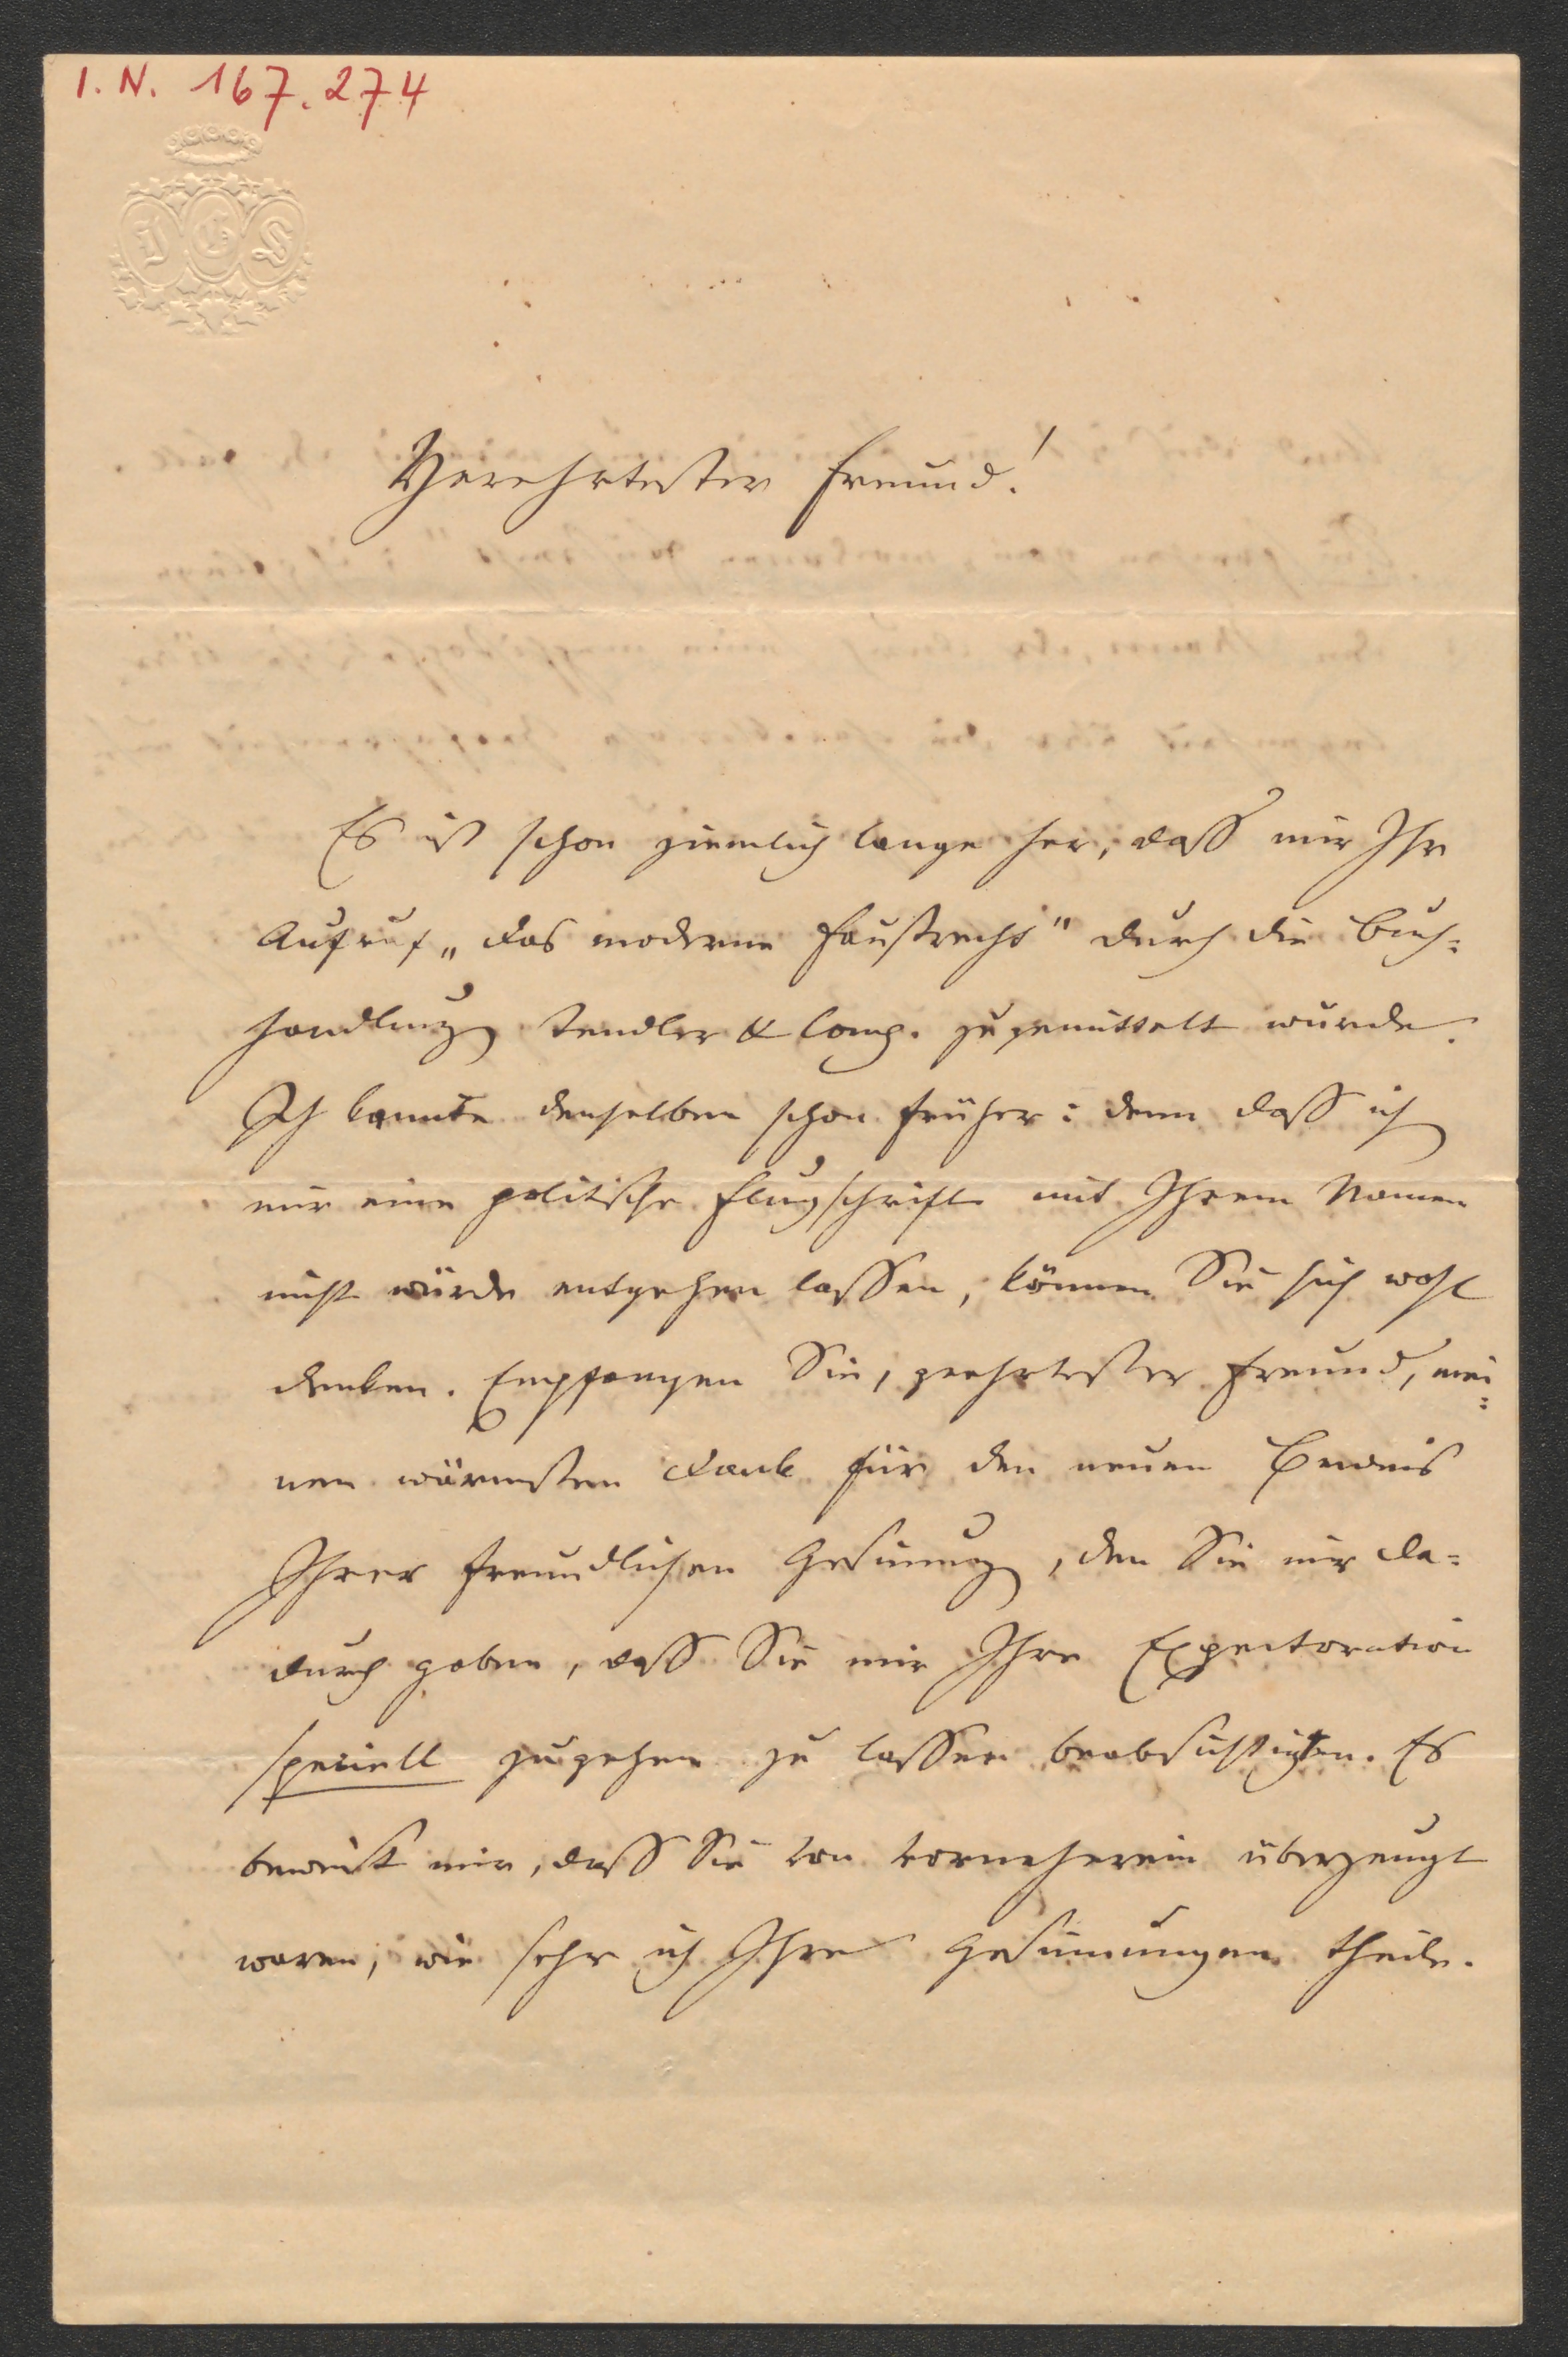 I. N. 167.274
J G S
Verehrtester Freund!
Es ist schon ziemlich lange her, daß mir Ihr
Aufruf „das moderne Faustrecht" durch die Buch=
handlung Tendler & Comp. zugemittelt wurde.
Ich kannte denselben schon früher: denn daß ich
mir eine politische Flugschrift mit Ihrem Namen
nicht würde entgehen lassen, können Sie sich wohl
denken. Empfangen Sie, geehrtester Freund, mei=
nen wärmsten Dank für den neuen Beweis
Ihrer freundlichen Gesinnung, den Sie mir da=
durch gaben, daß Sie mir Ihre Expectoration
speciell zugehen zu lassen beabsichtigten. Es
beweist mir, daß Sie von vorneherein überzeugt
waren, wie sehr ich Ihre Gesinnungen theile.